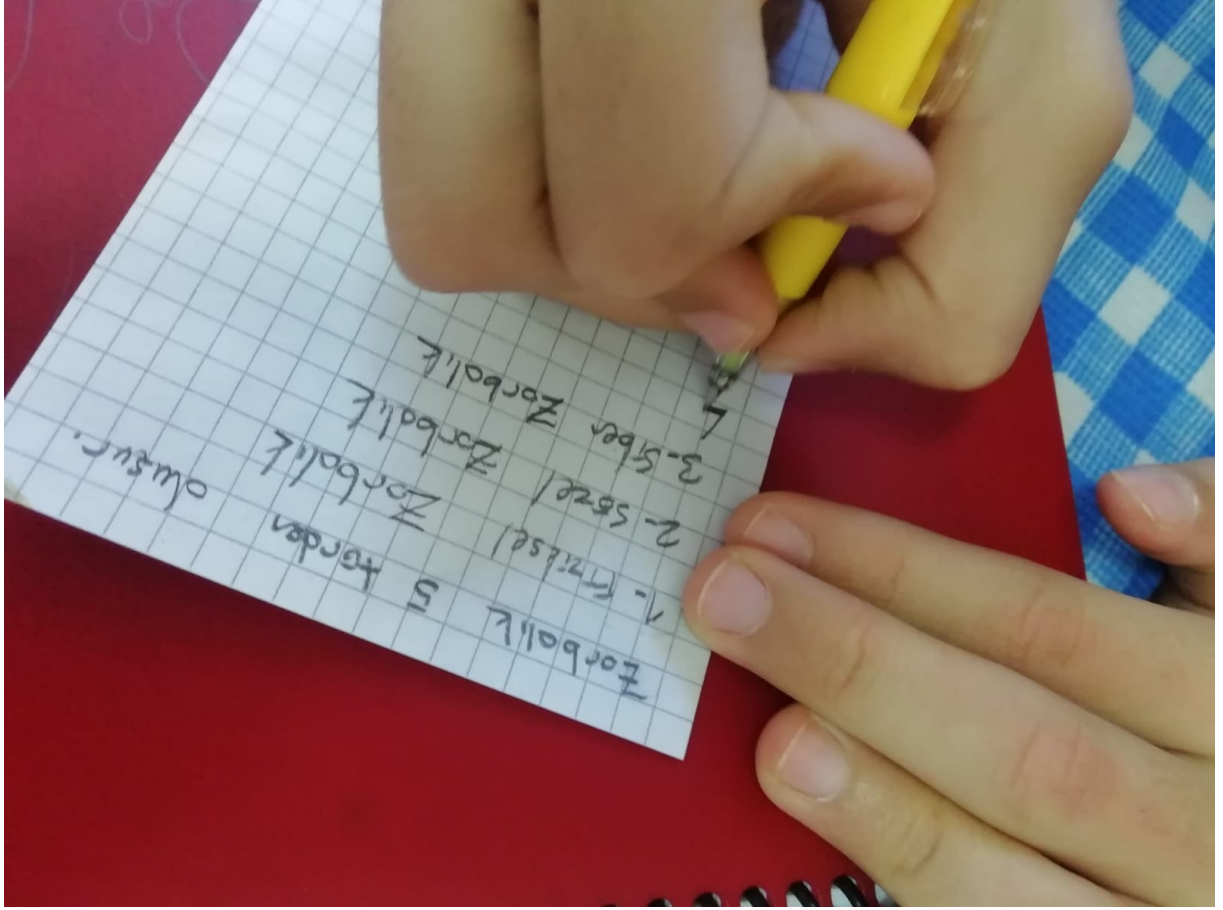 Zorbalık 5 türden oluşur.
1- Fiziksel Zorbalık
2- Sözel Zorbalık
3- Siber Zorbalık
4